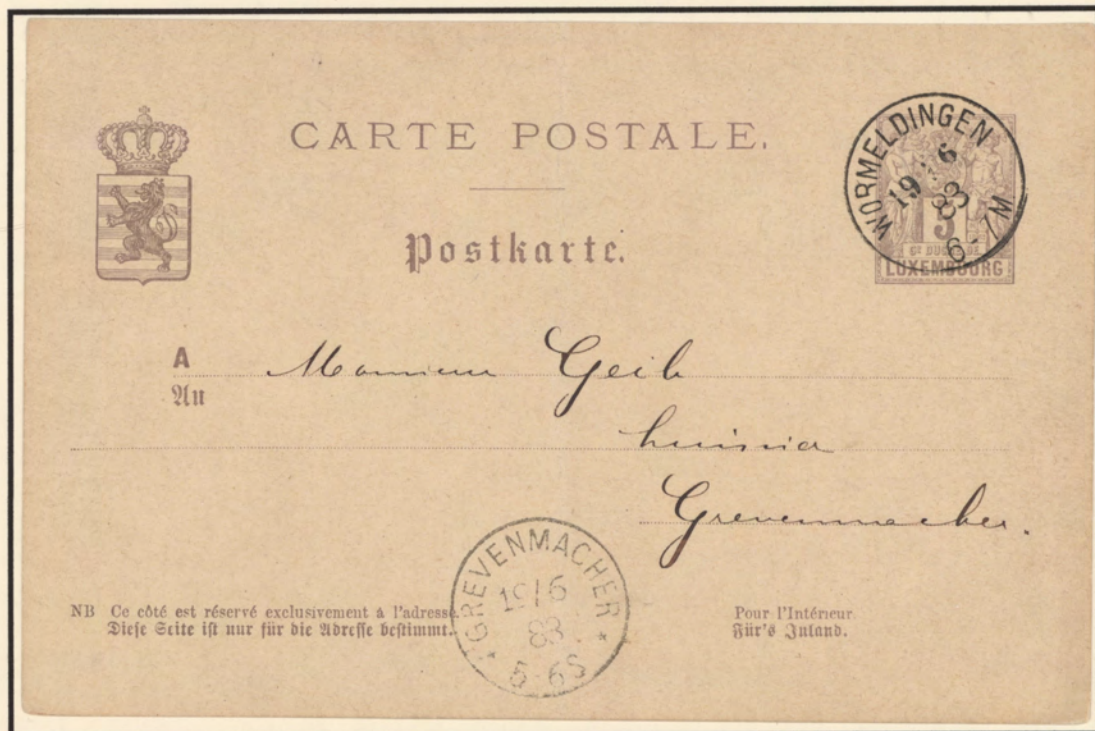 CARTE POSTALE.
Postkarte.
WORMELDINGEN
19 6
83
6-7M
5
GD DUCHÉ DE
LUXEMBOURG
A Monsieur Geib
An
huissier
Grevenmacher.
GREVENMACHER
19/6
83
5-6S
NB Ce côté est réservé exclusivement à l'adresse.
Diese Seite ist nur für die Adresse bestimmt.
Pour l'Intérieur
Für's Inland.